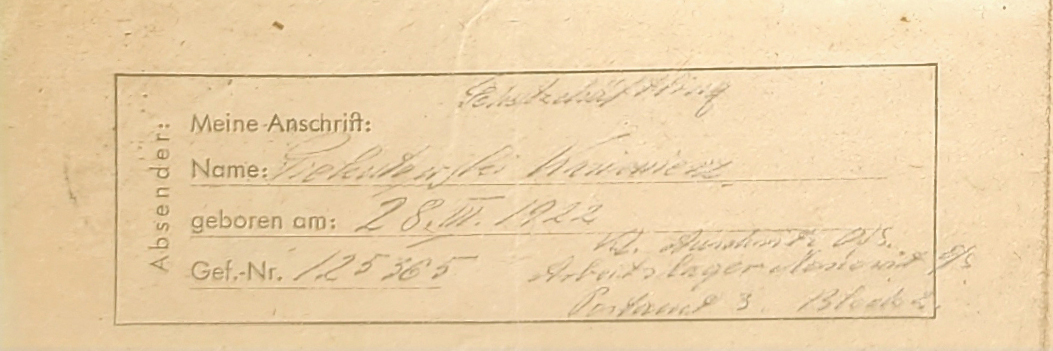 Absender:
Schutzhäftling
Meine Anschrift:
Name: Kazimierz
geboren am: 28. III. 1922
Kl. Auschwitz O/S.
Gef.-Nr. 125365
Arbeitslager Monowitz O/S
Postamt 3. Block 2.